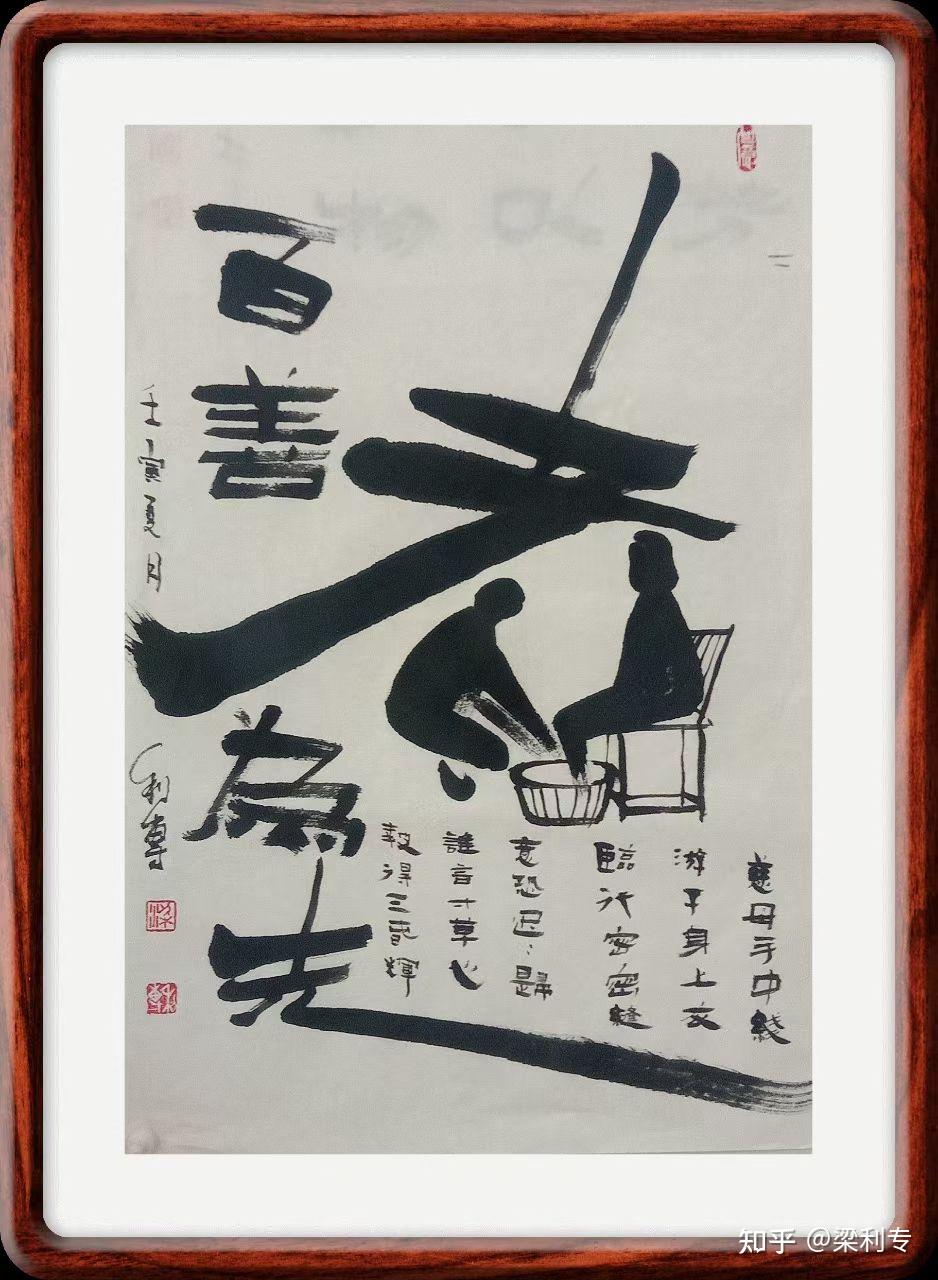 百善孝為先
慈母手中綫
游子身上衣
臨行密密縫
意恐迟〻歸
誰言寸草心
報得三春輝
壬寅夏月
利專
知乎 @梁利专